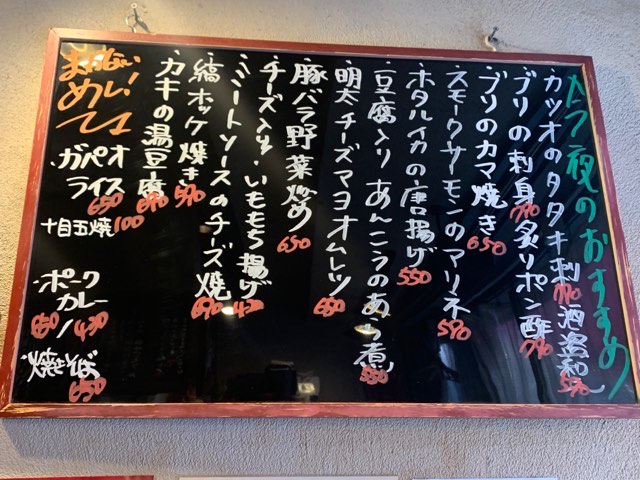 今夜のおすすめ
・カツオのタタキ刺 790 酒盗和え 590
・ブリの刺身 790 炙りポン酢 790
・ブリのカマ焼き 650
・スモークサーモンのマリネ 590
・ホタルイカの唐揚げ 550
・豆腐入りあんこうのあら煮 550
・明太チーズマヨオムレツ 680
・豚バラ野菜炒め 650
・チーズ入り、いももち揚げ 420
・ミートソースのチーズ焼 690
・縞ホッケ焼き 590
・カキの湯豆腐 690
まかないめし!
ガパオ
ライス
650
+目玉焼 100
ポーク
カレー
650 / 430
焼きそば
650